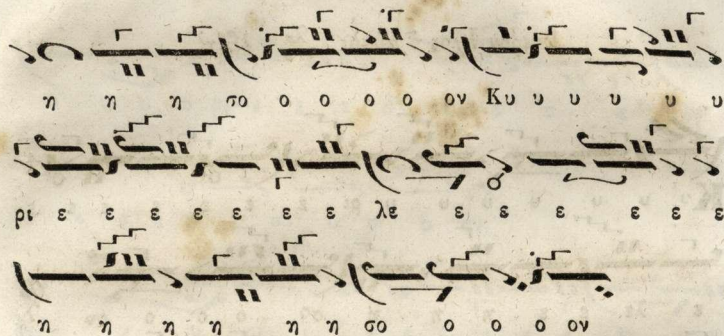 η η η σο ο ο ο ο ον Κυ υ υ υ υ υ
ρι ε ε ε ε ε ε λε ε ε ε ε ε ε
η η η η η η σο ο ο ο ον